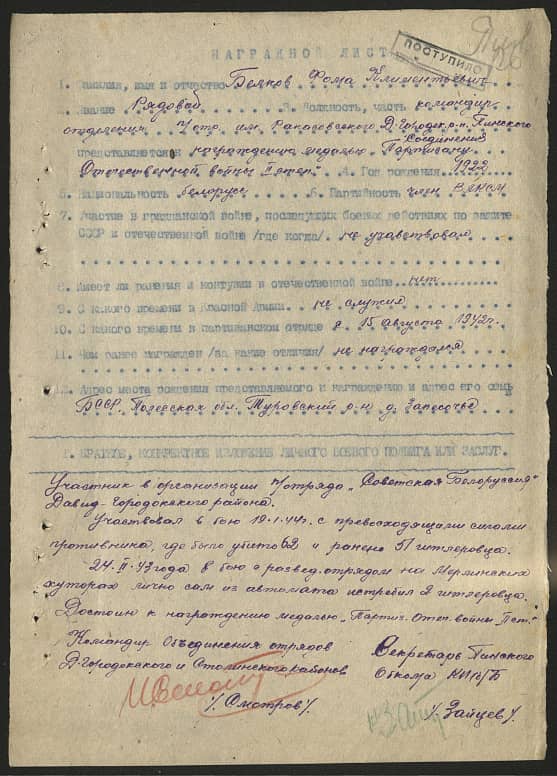 НАГРАДНОЙ ЛИСТ
ПОСТУПИЛО
1. Фамилия, имя и отчество Беяков Фома Климентьевич
2. Звание Рядовой 3. Должность, часть командир
отделения п/отр. им. Рокосовского Д-Городок. р-н Пинского
Соединения
представляется к награждению медалью "Партизану
Отечественной войны I степ." 4. Год рождения 1922
5. Национальность белорус 6. Партийность член ВЛКСМ
7. Участие в гражданской войне, последующих боевых действиях по защите
СССР и отечественной войне /где когда/ не учавствовал
8. Имеет ли ранения и контузии в отечественной войне нет
9. С какого времени в Красной Армии не служил
10. С какого времени в партизанском отряде с 15 августа 1942 г.
11. Чем ранее награжден /за какие отличия/ не награждался
12. Адрес места рождения представляемого к награждению и адрес его семьи
БССР, Полесская обл. Туровский р-н д. Запесочье
I. КРАТКОЕ, КОНКРЕТНОЕ ИЗЛОЖЕНИЕ ЛИЧНОГО БОЕВОГО ПОДВИГА ИЛИ ЗАСЛУГ.
Участник в организации п/отряда "Советская Белоруссия"
Давид-Городокского района.
Участвовал в бою 19.1.44 г. с превосходящими силами
противника, где было убито 62 и ранено 51 гитлеровца.
24.II.43 года в бою с развед. отрядом на Мерлинских
хуторах лично сам из автомата истребил 2 гитлеровца.
Достоин к награждению медалью "Партиз. Отеч. войны I ст."
Командир Объединения отрядов
Д-Городокского и Столинского районов
/Смотров/.
Секретарь Пинского
Обкома КП/б/Б
/Зайцев/.